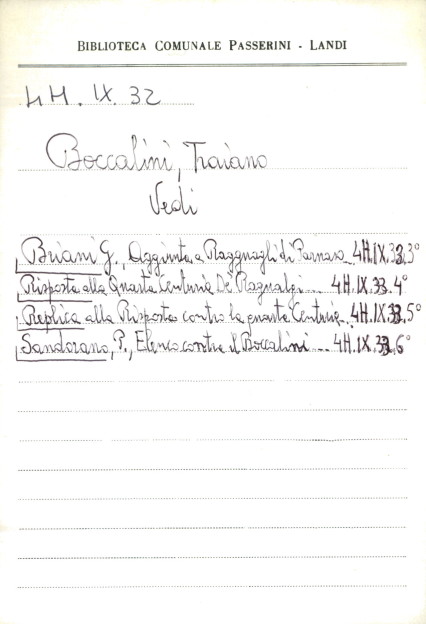 BIBLIOTECA COMUNALE PASSERINI - LANDI
4H. IX. 32
Boccalini, Traiano
Vedi
Briani G., Aggiunta a Ragguagli di Parnaso 4H.IX.33,3°
Risposta alla Quarta Centuria De' Ragualgi... 4H.IX.33.4°
Replica alla Risposta contro la quarta Centuria 4H.IX.33,5°
Sandorano, P., Elenco contra il Boccalini ... 4H.IX.33,6°